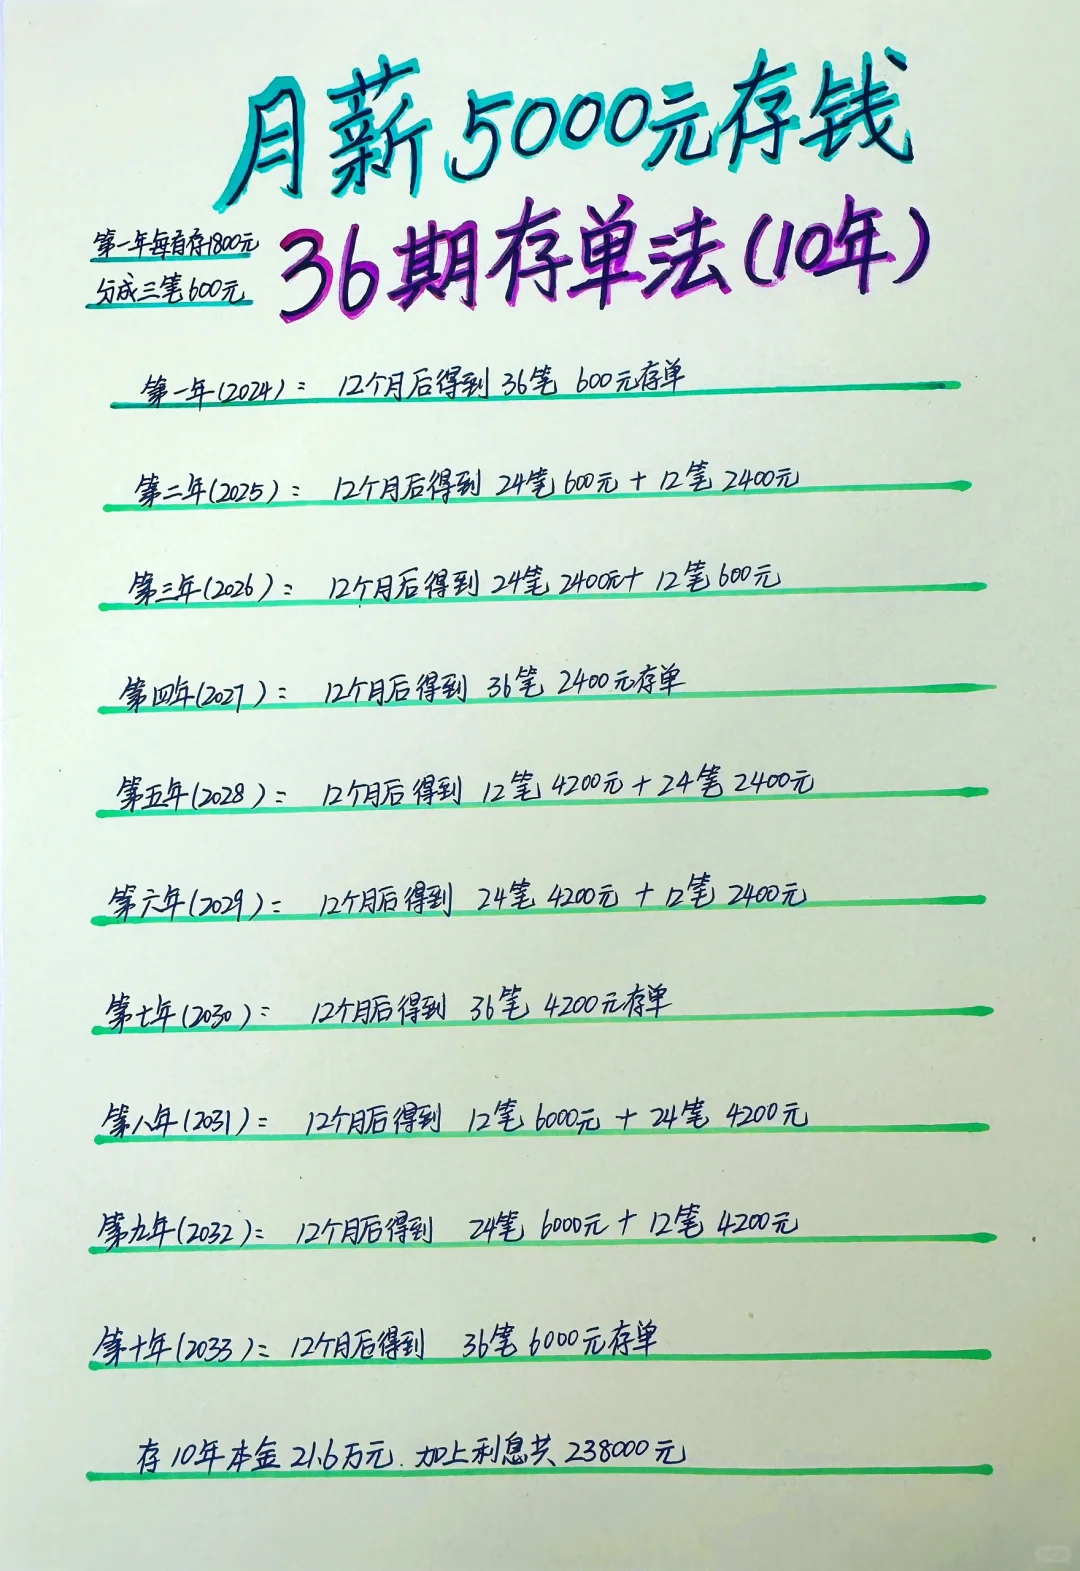 月薪5000元存钱
36期存单法(10年)
第一年每月存1800元
分成三笔600元
第一年(2024): 12个月后得到 36笔 600元存单
第二年(2025): 12个月后得到 24笔 600元 + 12笔 2400元
第三年(2026): 12个月后得到 24笔 2400元+ 12笔 600元
第四年(2027): 12个月后得到 36笔 2400元存单
第五年(2028): 12个月后得到 12笔 4200元 + 24笔 2400元
第六年(2029): 12个月后得到 24笔 4200元 + 12笔 2400元
第七年(2030): 12个月后得到 36笔 4200元存单
第八年(2031): 12个月后得到 12笔 6000元 + 24笔 4200元
第九年(2032): 12个月后得到 24笔 6000元 + 12笔 4200元
第十年(2033): 12个月后得到 36笔 6000元存单
存10年本金21.6万元.加上利息共238000元